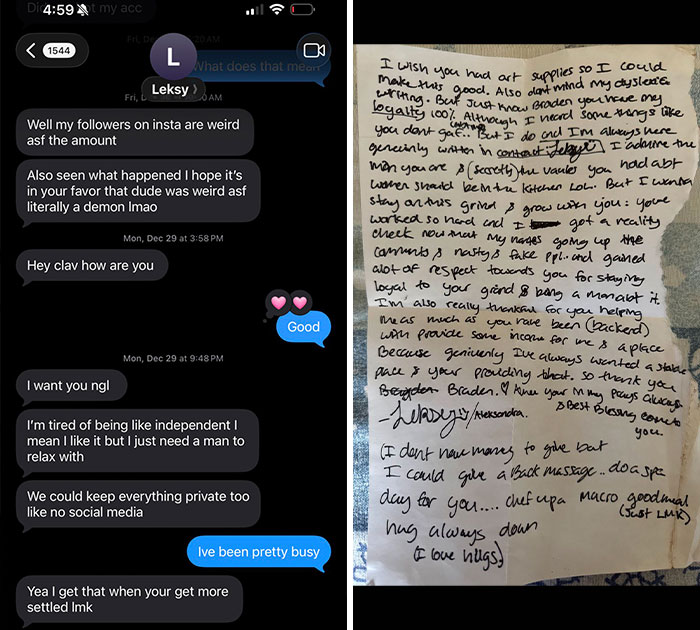 4:59
1544
L
Leksy
What does that mean
Well my followers on insta are weird
asf the amount
Also seen what happened I hope it's
in your favor that dude was weird asf
literally a demon lmao
Mon, Dec 29 at 3:58 PM
Hey clav how are you
Good
Mon, Dec 29 at 9:48 PM
I want you ngl
I'm tired of being like independent I
mean I like it but I just need a man to
relax with
We could keep everything private too
like no social media
Ive been pretty busy
Yea I get that when your get more
settled lmk
I wish you had art supplies so I could
make this good. Also dont mind my dyslexic
writing. But Just know Braden you have my
loyalty 100%. Although I heard some things like
you dont gaf.. But I do and I'm always here
genuinly written in contract Leksy I admire the
man you are & (secretly) the values you had abt
women should be in the kitchen LOL. But I wanna
stay on this grind & grow with you: youve
worked so hard and I got a reality
check now that my names going up the
comments & nasty & fake ppl.. and gained
alot of respect towards you for staying
loyal to your grind & being a man abt it
I'm also really thankful for you helping
me as much as you have been (backend)
with provide some income for me & a place
Because genuinly I've always wanted a stable
place & your providing that. So thank you
Braden. ♡ Know your Mmy prays always
& Best Blessing come to
you.
- Leksy /Aleksandra.
(I dont have money to give but
I could give a Back massage.. do a spa
day for you.... chef up a macro good meal
(Just LMK)
hug always down
(I love hugs)